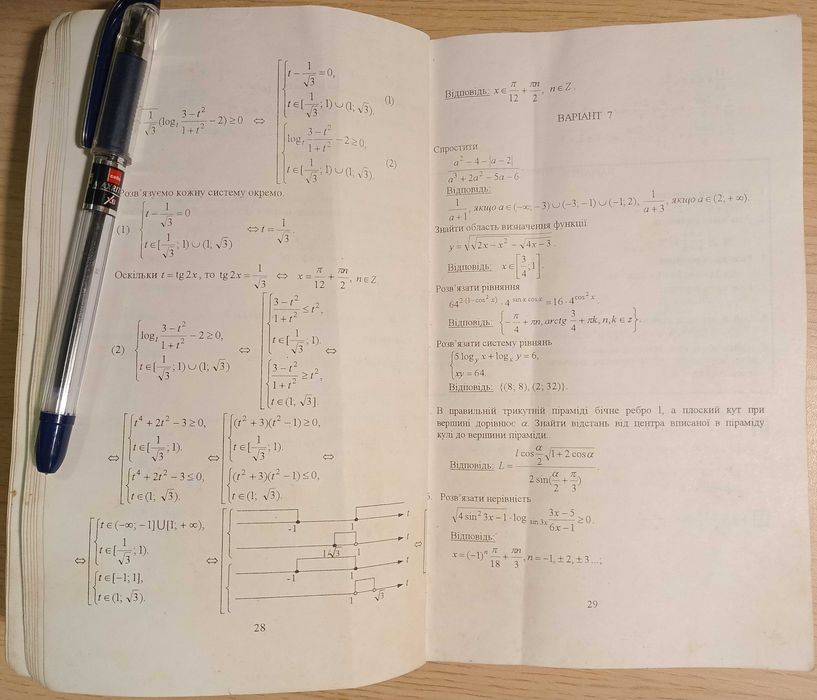 1/√3 (log_t (3−t²)/(1+t²) −2)≥0 ⇔ [ { t − 1/√3 = 0, t∈[1/√3; 1)∪(1; √3). (1)
{ log_t (3−t²)/(1+t²) −2≥0, t∈[1/√3; 1)∪(1; √3). (2)
зв'язуємо кожну систему окремо.
(1) { t − 1/√3 = 0 t∈[1/√3; 1)∪(1; √3) ⇔ t = 1/√3.
Оскільки t = tg 2x, то tg 2x = 1/√3 ⇔ x = π/12 + πn/2, n∈Z
(2) { log_t (3−t²)/(1+t²) −2≥0, t∈[1/√3; 1)∪(1; √3) ⇔ [ { (3−t²)/(1+t²) ≤ t², t∈[1/√3; 1). { (3−t²)/(1+t²) ≥ t², t∈(1, √3]. ⇔
⇔ [ { t⁴+2t²−3≥0, t∈[1/√3; 1). { t⁴+2t²−3≤0, t∈(1; √3). ⇔ [ { (t²+3)(t²−1)≥0, t∈[1/√3; 1). { (t²+3)(t²−1)≤0, t∈(1; √3). ⇔
⇔ [ { t∈(−∞; −1]∪[1; +∞), t∈[1/√3; 1). { t∈[−1; 1], t∈(1; √3). ⇔ [ { −1 1 t
1/√3 1 t
{ −1 1 t
1 √3 t ⇔
28
Відповідь: x∈ π/12 + πn/2, n∈Z.
ВАРІАНТ 7
Спростити
(a²−4−|a−2|)/(a³+2a²−5a−6)
Відповідь:
1/(a+1), якщо a∈(−∞; −3)∪(−3; −1)∪(−1; 2), 1/(a+3), якщо a∈(2, +∞).
Знайти область визначення функції
y = √(√(2x−x²) − √(4x−3)).
Відповідь: x∈[3/4; 1].
Розв'язати рівняння
64^(2·(1−cos² x)) · 4^(sin x cos x) = 16·4^(cos² x)
Відповідь: { −π/4 + πn, arctg 3/4 + πk, n,k∈z }.
Розв'язати систему рівнянь
{ 5 log_y x + log_x y = 6, xy = 64.
Відповідь: {(8; 8), (2; 32)}.
В правильній трикутній піраміді бічне ребро l, а плоский кут при
вершині дорівнює α. Знайти відстань від центра вписаної в піраміду
кулі до вершини піраміди.
Відповідь: L = (l cos α/2 √(1+2 cos α))/(2 sin(α/2 + π/3)).
Розв'язати нерівність
√(4 sin² 3x −1) · log_(sin 3x) (3x−5)/(6x−1) ≥ 0.
Відповідь:
x = (−1)ⁿ π/18 + πn/3, n = −1, ±2, ±3...;
29